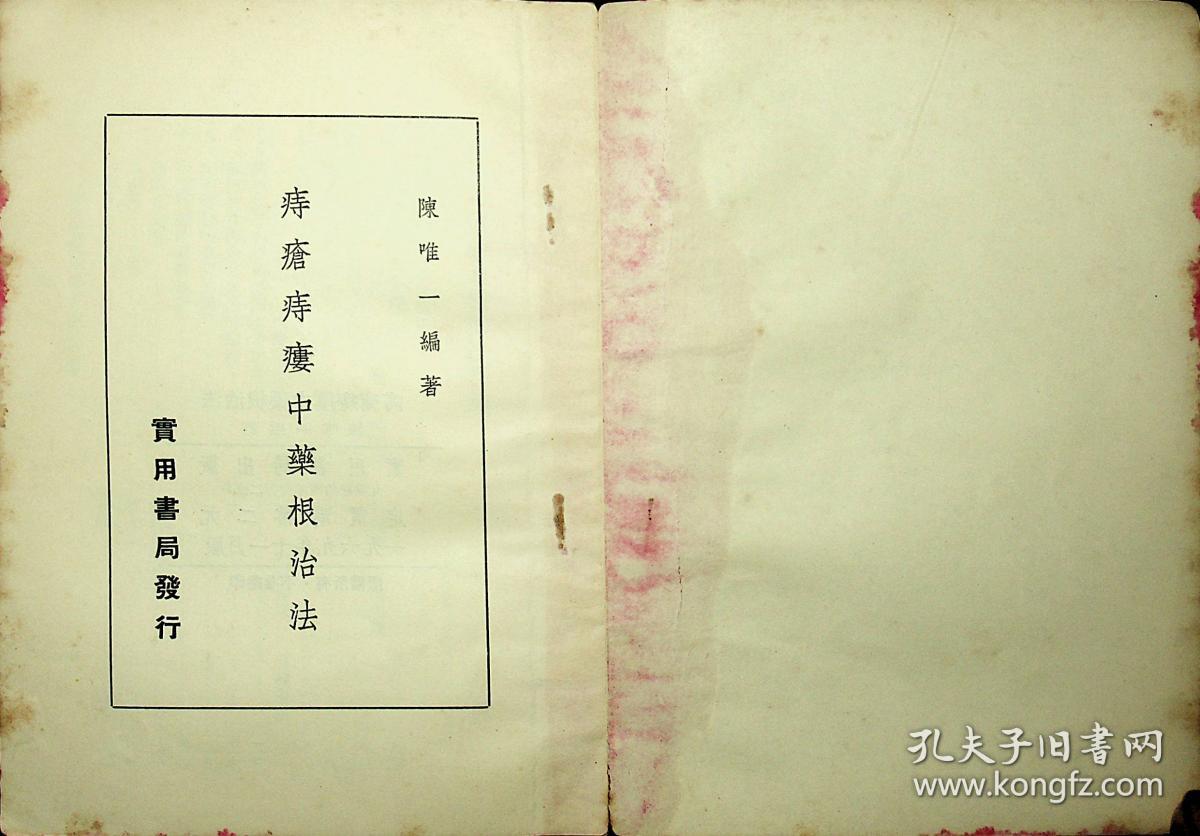 陳唯一編著
痔瘡痔瘻中藥根治法
實用書局發行
孔夫子旧书网
www.kongfz.com